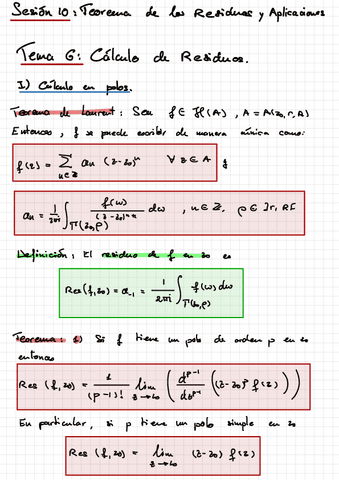 Sesión 10: Teorema de los Residuos y Aplicaciones
Tema 6: Cálculo de Residuos.
I) Cálculo en polos.
Teorema de Laurent: Sea f ∈ ℋ(A), A = A(z₀, r, R)
Entonces, f se puede escribir de manera única como:
f(z) = ∑_{n∈ℤ} aₙ (z-z₀)ⁿ ∀ z ∈ A y
aₙ = 1/2πi ∫_{Γ(z₀,ρ)} f(w)/(z-z₀)ⁿ⁺¹ dw, n ∈ ℤ, ρ ∈ ]r, R[
Definición: El residuo de f en z₀ es
Res(f, z₀) = a₋₁ = 1/2πi ∫_{Γ(z₀,ρ)} f(w) dw
Teorema: 1) Si f tiene un polo de orden p en z₀
entonces
Res (f, z₀) = 1/(p-1)! lim_{z→z₀} (d^{p-1}/dz^{p-1} ((z-z₀)^p f(z)))
En particular, si p tiene un polo simple en z₀
Res (f, z₀) = lim_{z→z₀} (z-z₀) f(z)